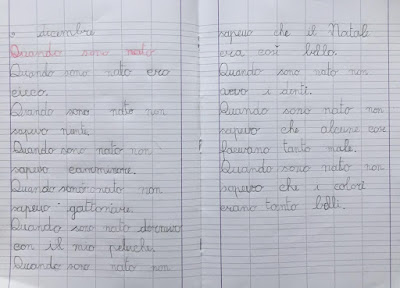 dicembre
Quando sono nato
Quando sono nato ero
cieco.
Quando sono nato non
sapevo niente.
Quando sono nato non
sapevo camminare.
Quando sono nato non
sapevo gattonare.
Quando sono nato dormivo
con il mio peluche.
Quando sono nato non
sapevo che il Natale
era così bello.
Quando sono nato non
avevo i denti.
Quando sono nato non
sapevo che alcune cose
facevano tanto male.
Quando sono nato non
sapevo che i colori
erano tanto belli.